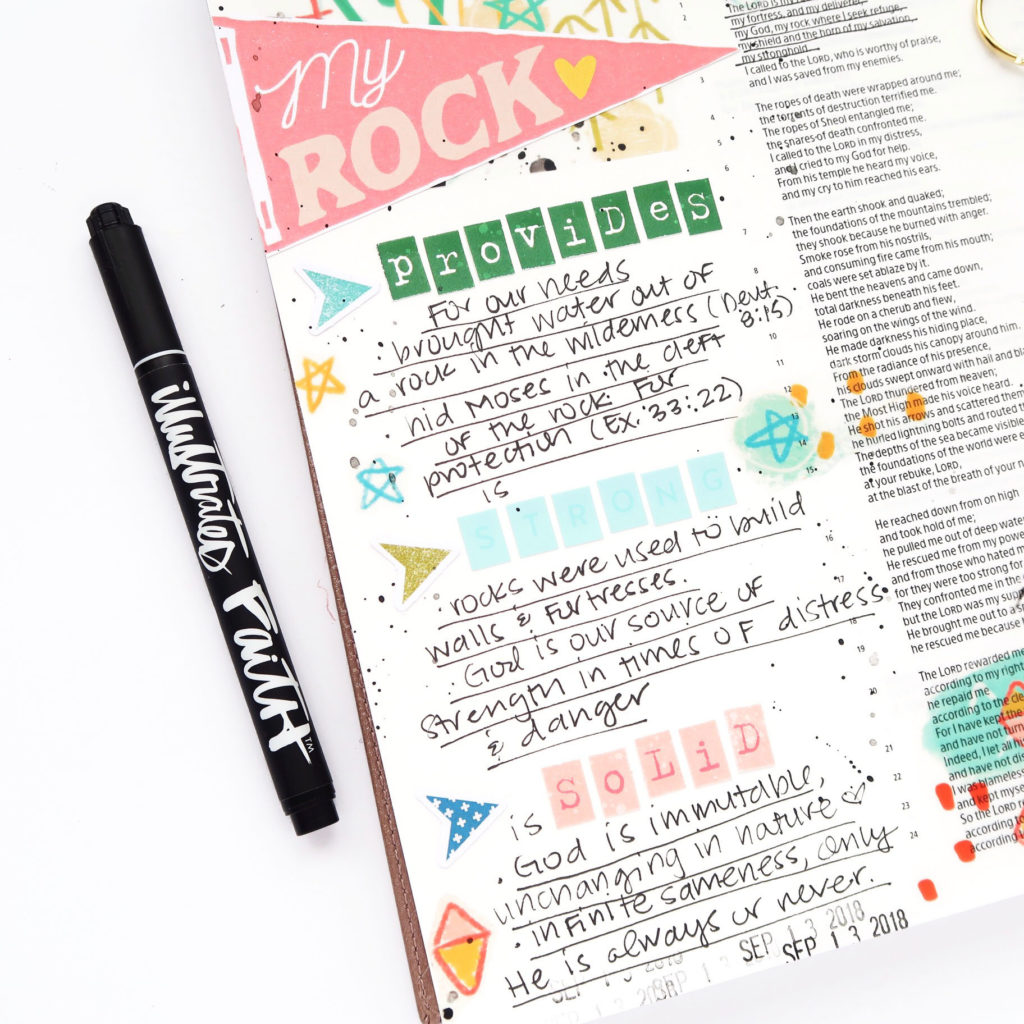 My
ROCK
PROViDeS
For our needs
• brought water out of
a rock in the wilderness (Deut.
8:15)
• hid Moses in the cleft
of the rock for
protection (Ex. 33:22)
is
STRONG
• rocks were used to build
walls & fortresses.
• God is our source of
strength in times of distress
& danger
is SOLiD
• God is immutable,
unchanging in nature
• infinite sameness, only
He is always or never.
SEP 13 2018
SEP 13 2018
illustrated Faith™
The LORD is my
my fortress, and my deliverer,
my God, my rock where I seek refuge,
my shield and the horn of my salvation,
my stronghold.
I called to the LORD, who is worthy of praise,
and I was saved from my enemies.
The ropes of death were wrapped around me;
the torrents of destruction terrified me.
The ropes of Sheol entangled me;
the snares of death confronted me.
I called to the LORD in my distress,
and I cried to my God for help.
From his temple he heard my voice,
and my cry to him reached his ears.
Then the earth shook and quaked;
the foundations of the mountains trembled;
they shook because he burned with anger.
Smoke rose from his nostrils,
and consuming fire came from his mouth;
coals were set ablaze by it.
He bent the heavens and came down,
total darkness beneath his feet.
He rode on a cherub and flew,
soaring on the wings of the wind.
He made darkness his hiding place,
dark storm clouds his canopy around him.
From the radiance of his presence,
his clouds swept onward with hail and
The LORD thundered from heaven;
the Most High made his voice heard.
He shot his arrows and scattered them
he hurled lightning bolts and routed
The depths of the sea became visible
the foundations of the world were
at your rebuke, LORD,
at the blast of the breath of your
He reached down from on high
and took hold of me;
he pulled me out of deep water
He rescued me from my
and from those who hated
for they were too strong for
They confronted me in the
but the LORD was my
He brought me out to a
he rescued me because
The LORD rewarded me
according to my
he repaid me
according to the
For I have kept the
and have not
Indeed, I let all
and have not
I was blameless
and kept
So the LORD
according to
according